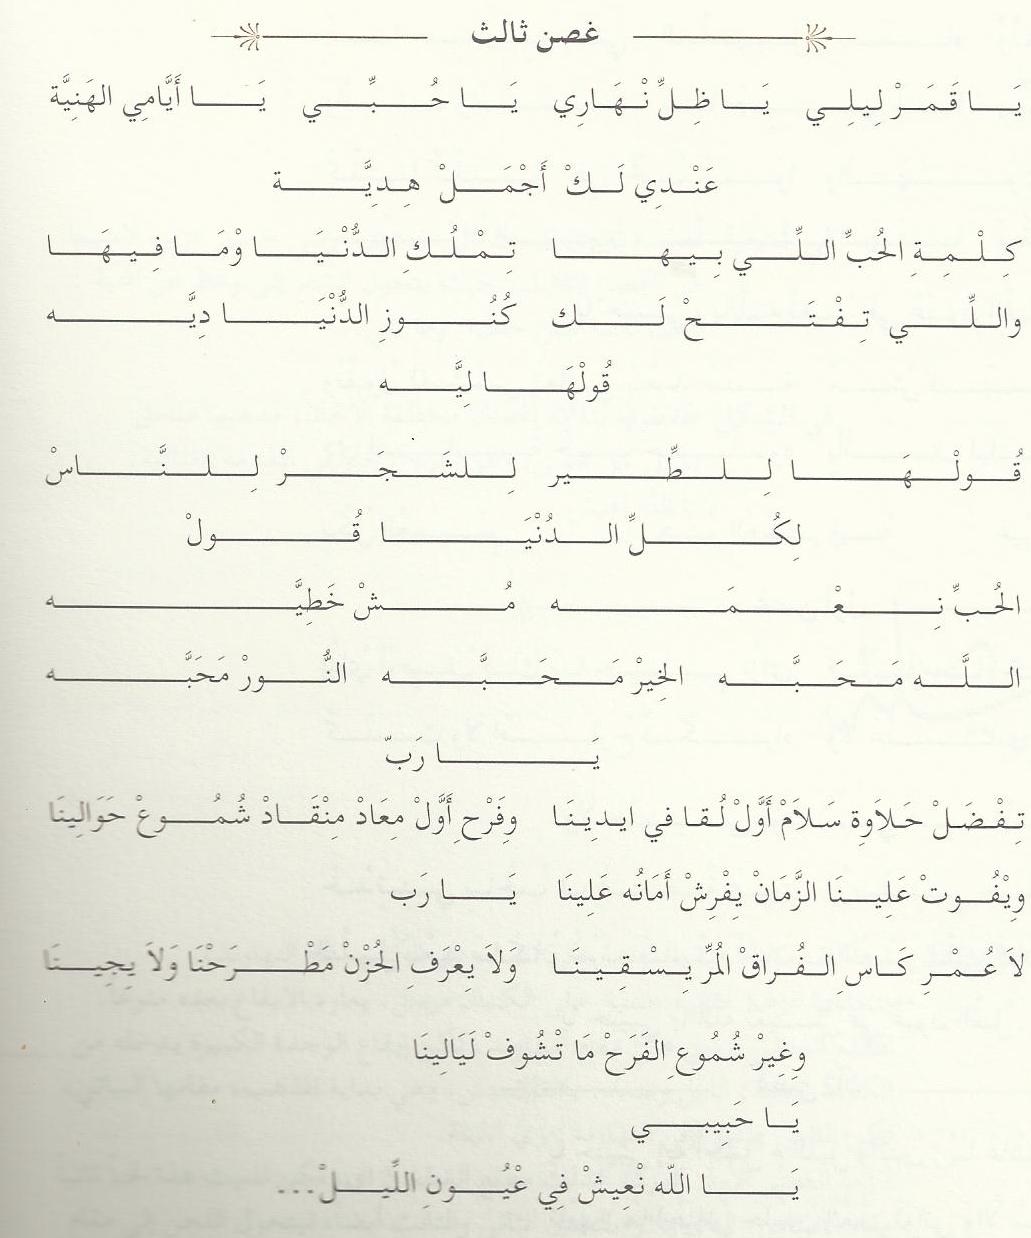 غصن ثالث
يَا قَمَرْ لِيلِي يَا ظِلِّ نْهَارِي يَا حُبِّي يَا أَيَّامِي الهَنِيَّة
عَنْدِي لَكْ أَجْمَلْ هِدِيَّة
كِلْمِةِ الحُبِّ اللِّي بِيهَا تِمْلُكِ الدُّنْيَا وْمَا فِيهَا
واللِّي تِفْتَحْ لَك كُنُوزِ الدُّنْيَا دِيَّه
قُولْهَا لِيَّه
قُولْهَا لِلطِّير لِلشَجَرْ لِلنَّاسْ
لِكُلِّ الدُنْيَا قُولْ
الحُبِّ نِعْمَه مُشْ خَطِيَّه
اللَّه مَحَبَّه الخِيرْ مَحَبَّه النُّورْ مَحَبَّه
يَا رَبّ
تِفْضَلْ حَلاَوِة سَلاَمْ أَوَّلْ لُقا في ايدِينَا وِفَرْحِ أَوَّلْ مِعَادْ مِنْقَادْ شُمُوعْ حَوَالِينَا
ويْفُوتْ عَلِينَا الزَّمَانْ يِفْرِشْ أَمَانُه عَلِينَا يَا رَب
لاَ عُمْرِ كَاسِ الفُراقْ المُرِّ يِسْقِينَا وَلاَ يِعْرَفِ الحُزْنْ مَطْرَحْنَا وَلاَ يِجِينَا
وِغِيرْ شُمُوعِ الفَرَحْ مَا تْشُوفْ لَيَالِينَا
يَا حَبِيبِي
يَا اللّه نْعِيشْ فِي عْيُونِ اللِّيلْ...